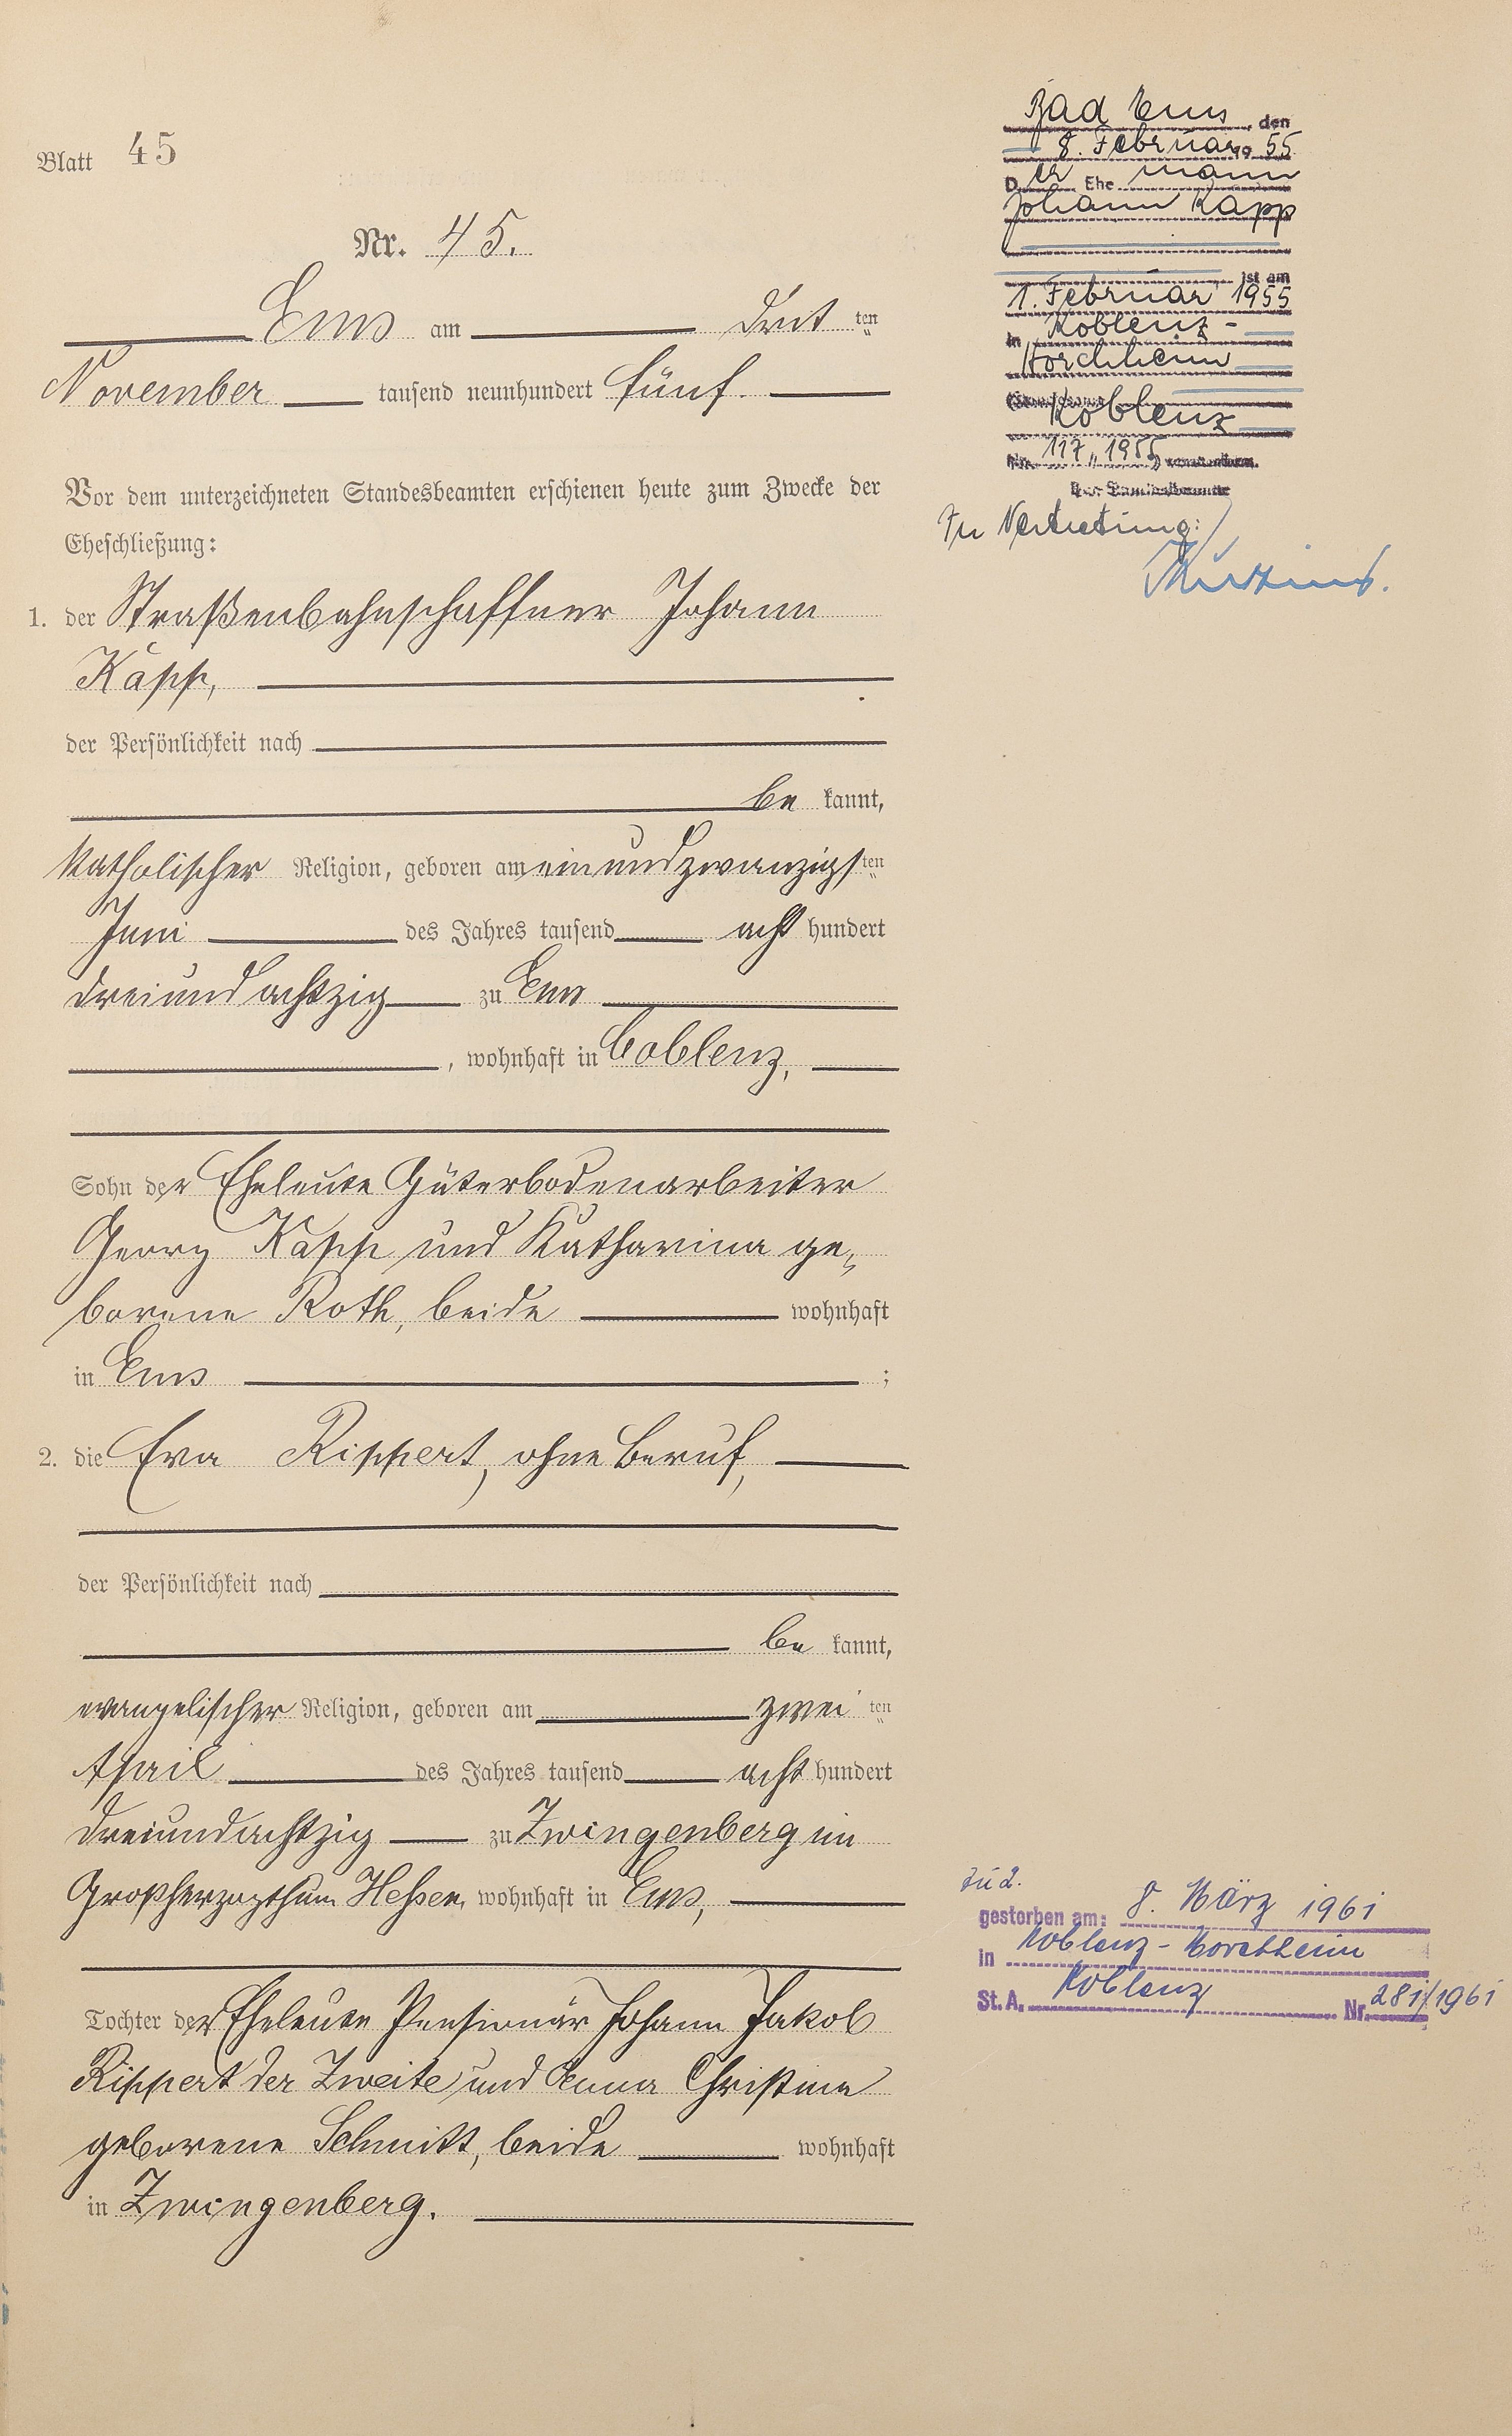 Blatt 45
Nr. 45.
Ems am drit ten
November tausend neunhundert fünf.
Vor dem unterzeichneten Standesbeamten erschienen heute zum Zwecke der
Eheschließung:
1. der Straßenbahnschaffner Johann
Kapp,
der Persönlichkeit nach
be kannt,
katholischer Religion, geboren am einundzwanzigsten
Juni des Jahres tausend acht hundert
dreiundachtzig zu Ems
, wohnhaft in Coblenz,
Sohn der Eheleute Güterbodenarbeiter
Georg Kapp und Katharina ge-
borene Roth, beide wohnhaft
in Ems ;
2. die Eva Rippert, ohne Beruf,
der Persönlichkeit nach
be kannt,
evangelischer Religion, geboren am zwei ten
April des Jahres tausend acht hundert
dreiundachtzig zu Zwingenberg im
Großherzogthum Hessen, wohnhaft in Ems,
Tochter der Eheleute Pensionär Johann Jakob
Rippert der Zweite und Anna Christina
geborene Schmitt, beide wohnhaft
in Zwingenberg.
Bad Ems, den
8. Februar 1955
Der Ehemann
Johann Kapp
ist am
1. Februar 1955
in Koblenz-
Horchheim
Koblenz
Nr. 117, 1955
Der Standesbeamte
In Vertretung:
zu 2.
gestorben am: 8. März 1961
in Koblenz-Horchheim
St. A. Koblenz Nr. 281/1961